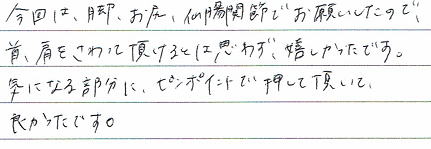 今回は、脚、お尻、仙腸関節でお願いしたので、
首、肩をさわって頂けるとは思わず、嬉しかったです。
気になる部分に、ピンポイントで押して頂いて、
良かったです。